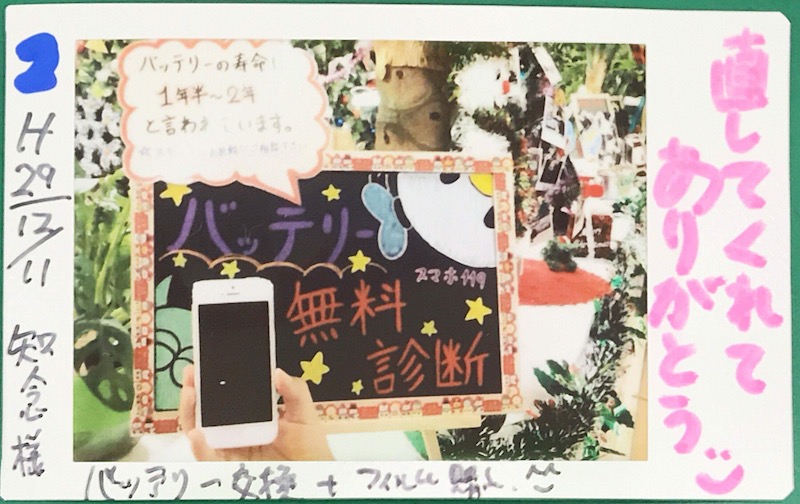 2
H29/12/11 知念様
バッテリーの寿命は
1年半〜2年
と言われています。
バッテリー
スマホ119
無料
診断
直してくれて
ありがとう
バッテリー交換 + フィルム購入